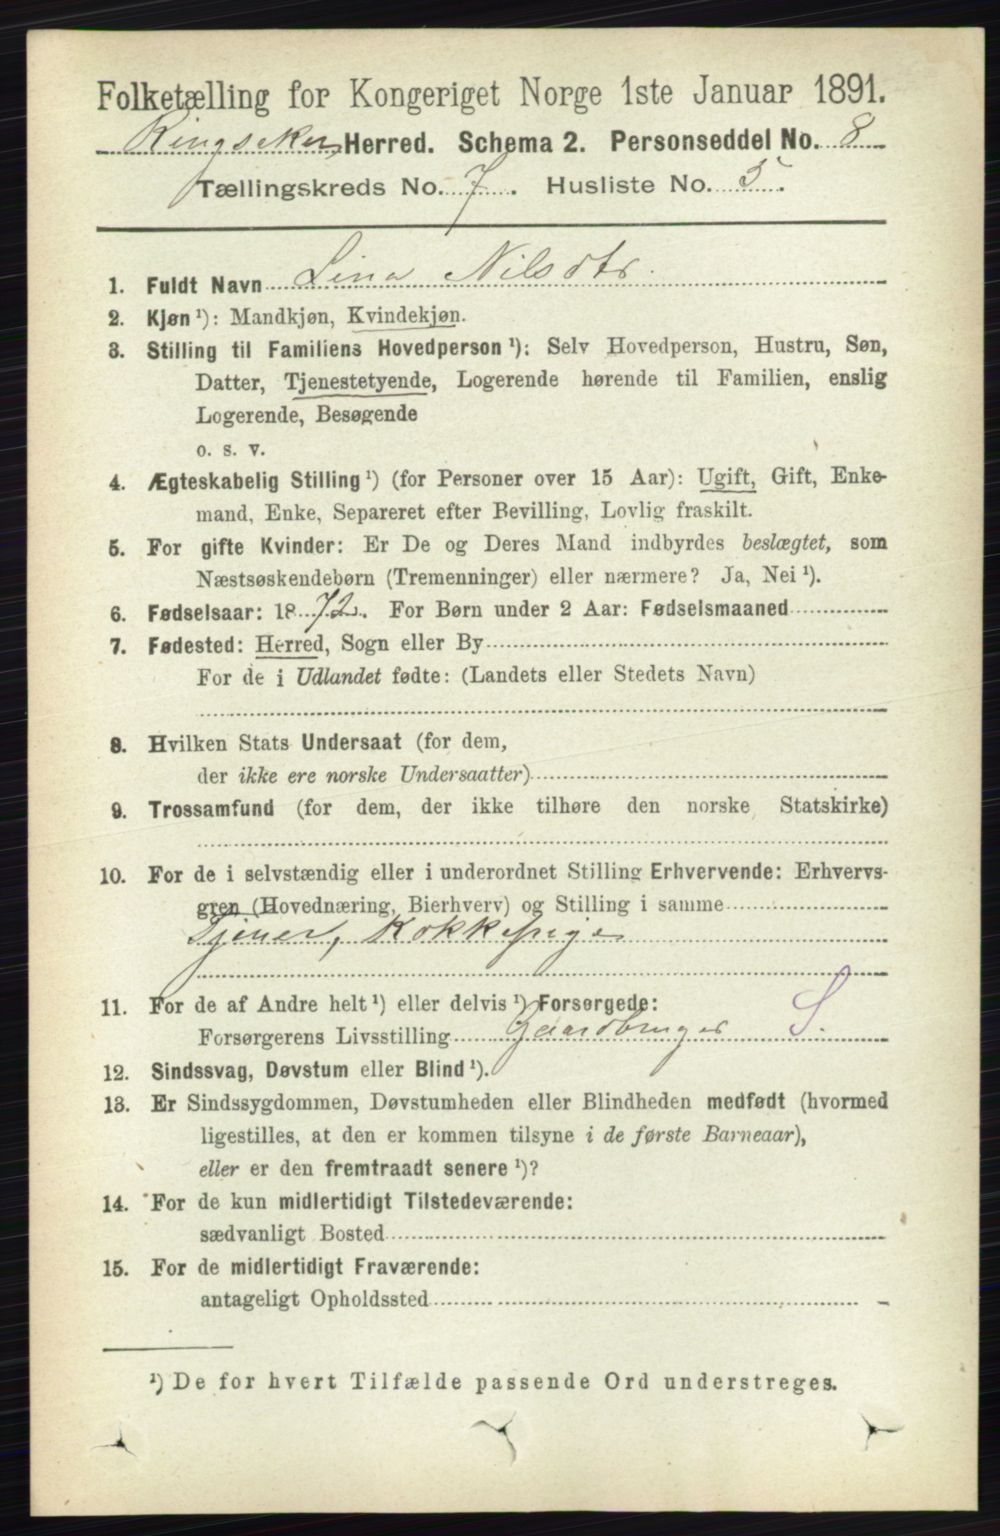 Folketælling for Kongeriget Norge 1ste Januar 1891.
Ringsaker Herred. Schema 2. Personseddel No. 8
Tællingskreds No. 7. Husliste No. 5.
1. Fuldt Navn Lina Nilsdtr.
2. Kjøn ¹): Mandkjøn, Kvindekjøn.
3. Stilling til Familiens Hovedperson ¹): Selv Hovedperson, Hustru, Søn,
Datter, Tjenestetyende, Logerende hørende til Familien, enslig
Logerende, Besøgende
o. s. v.
4. Ægteskabelig Stilling ¹) (for Personer over 15 Aar): Ugift, Gift, Enke-
mand, Enke, Separeret efter Bevilling, Lovlig fraskilt.
5. For gifte Kvinder: Er De og Deres Mand indbyrdes beslægtet, som
Næstsøskendebørn (Tremenninger) eller nærmere? Ja, Nei ¹).
6. Fødselsaar: 1872. For Børn under 2 Aar: Fødselsmaaned
7. Fødested: Herred, Sogn eller By
For de i Udlandet fødte: (Landets eller Stedets Navn)
8. Hvilken Stats Undersaat (for dem,
der ikke ere norske Undersaatter)
9. Trossamfund (for dem, der ikke tilhøre den norske Statskirke)
10. For de i selvstændig eller i underordnet Stilling Erhvervende: Erhvervs-
gren (Hovednæring, Bierhverv) og Stilling i samme
Tjener, Kokkepige
11. For de af Andre helt ¹) eller delvis ¹) Forsørgede:
Forsørgerens Livsstilling Gaardbruger S.
12. Sindssvag, Døvstum eller Blind ¹).
13. Er Sindssygdommen, Døvstumheden eller Blindheden medfødt (hvormed
ligestilles, at den er kommen tilsyne i de første Barneaar),
eller er den fremtraadt senere ¹)?
14. For de kun midlertidigt Tilstedeværende:
sædvanligt Bosted
15. For de midlertidigt Fraværende:
antageligt Opholdssted
¹) De for hvert Tilfælde passende Ord understreges.